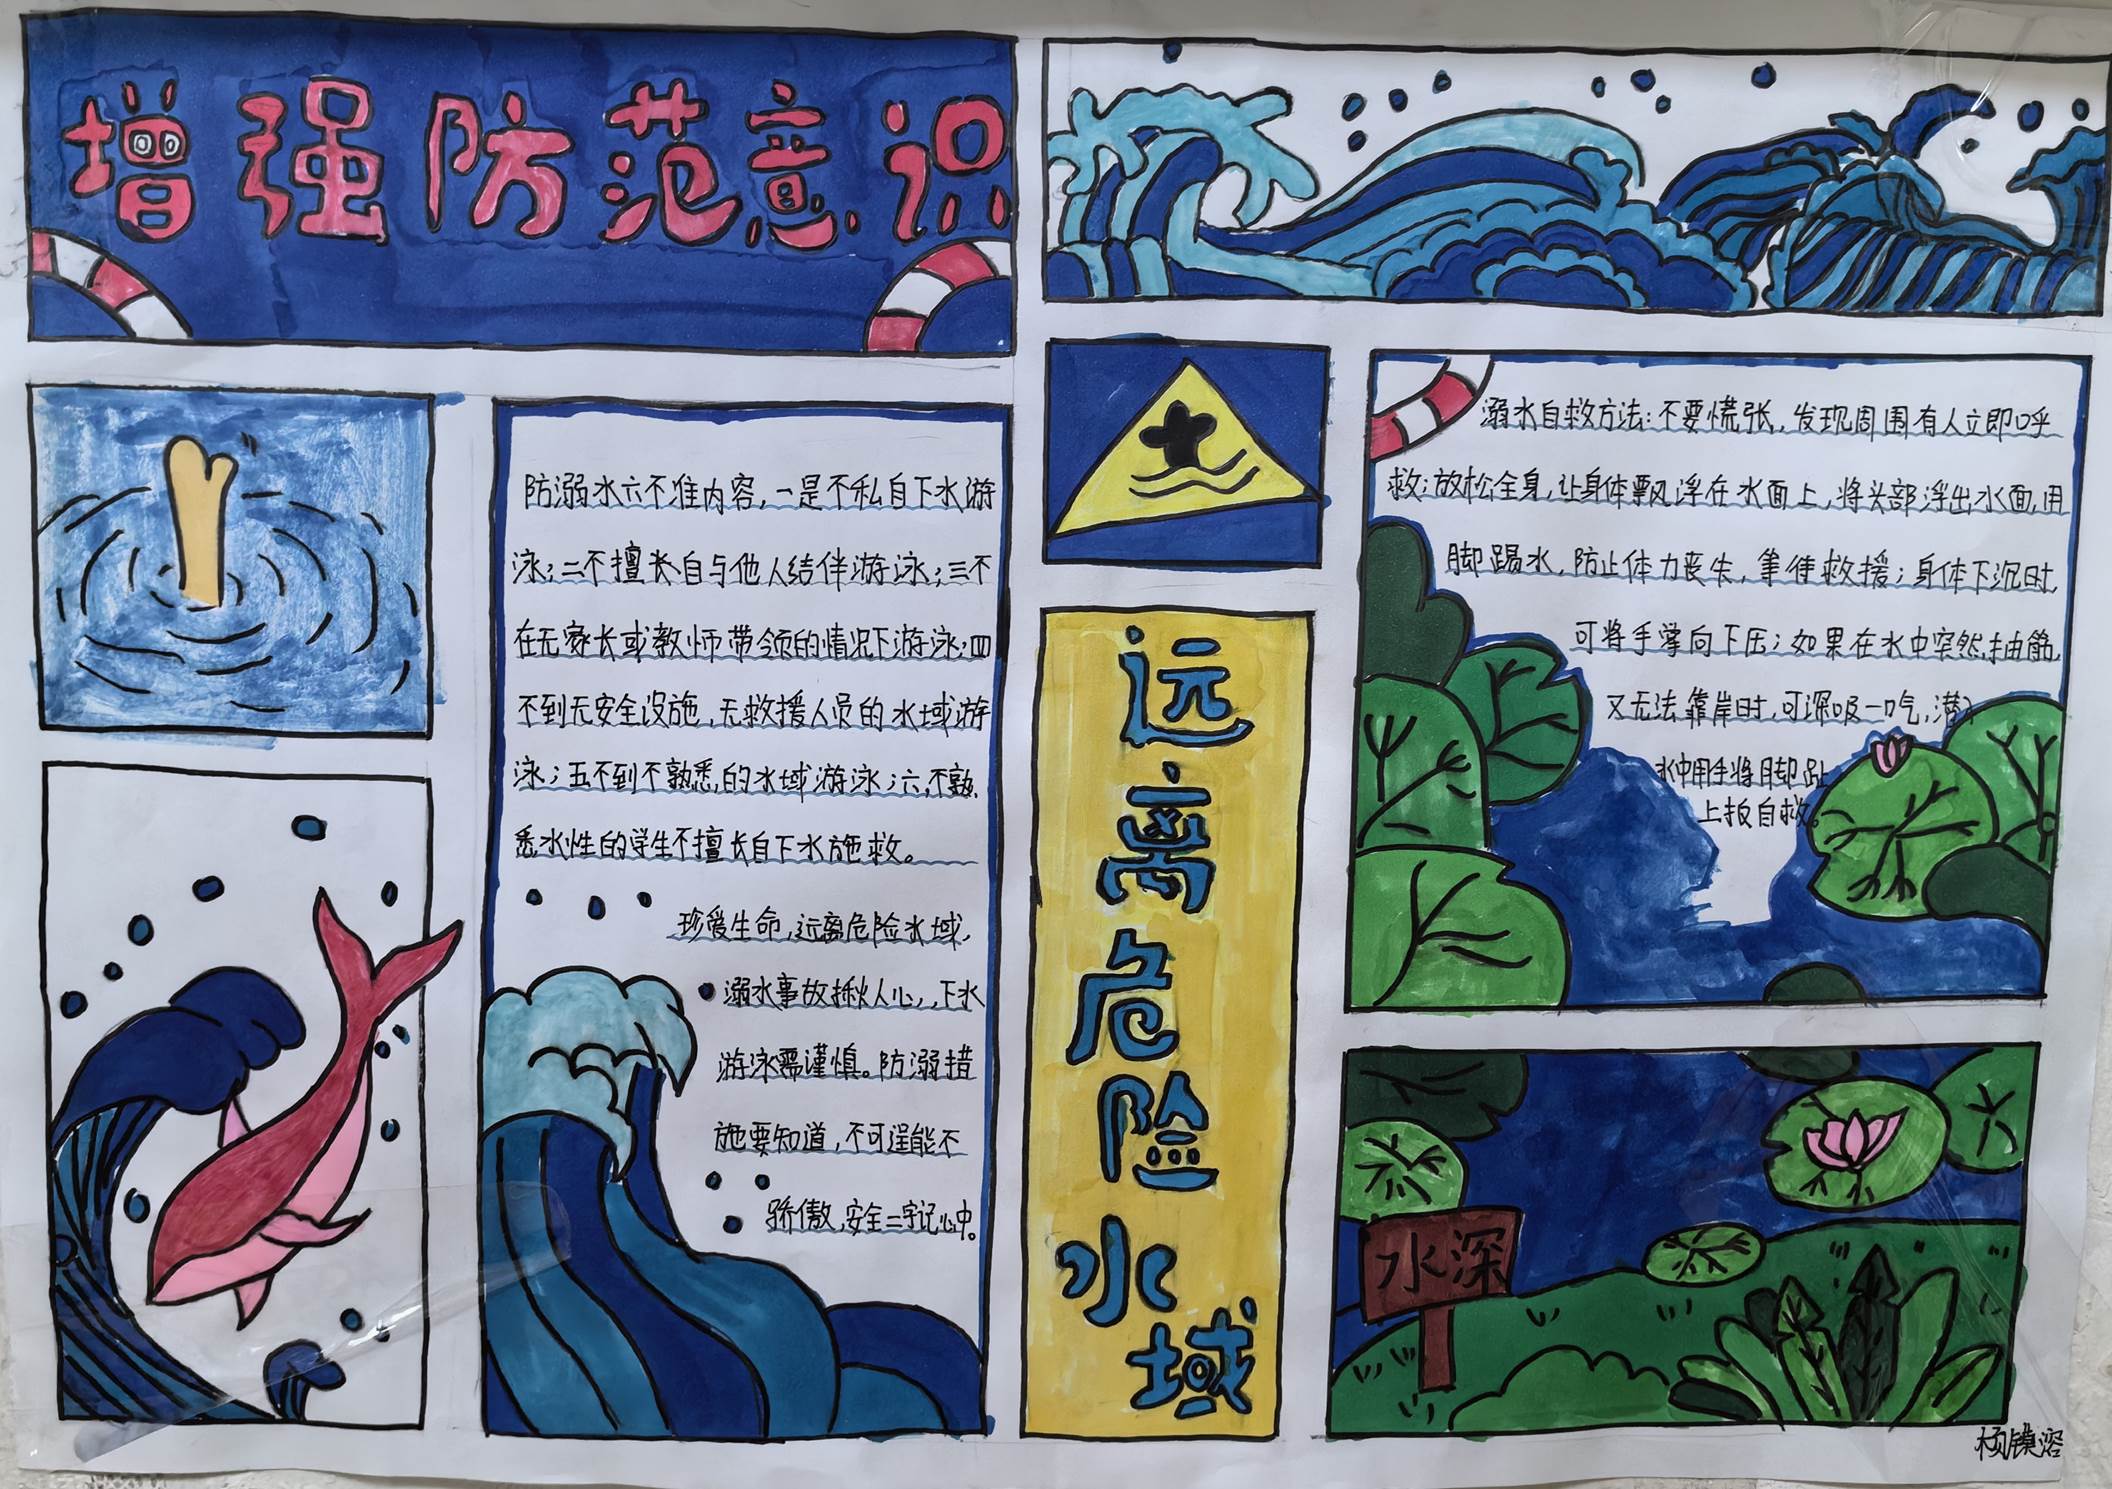 增强防范意识
防溺水六不准内容，一是不私自下水游
泳；二不擅长自与他人结伴游泳；三不
在无家长或教师带领的情况下游泳；四
不到无安全设施，无救援人员的水域游
泳；五不到不熟悉的水域游泳；六，不熟
悉水性的学生不擅长自下水施救。
珍爱生命，远离危险水域，
溺水事故揪人心，，下水
游泳需谨慎。防溺措
施要知道，不可逞能不
骄傲，安全二字记心中。
远离危险水域
溺水自救方法：不要慌张，发现周围有人立即呼
救；放松全身，让身体飘浮在水面上，将头部浮出水面，用
脚踢水，防止体力丧失，等待救援；身体下沉时，
可将手掌向下压；如果在水中突然抽筋，
又无法靠岸时，可深吸一口气，潜入
水中用手将脚趾
上扳自救。
水深